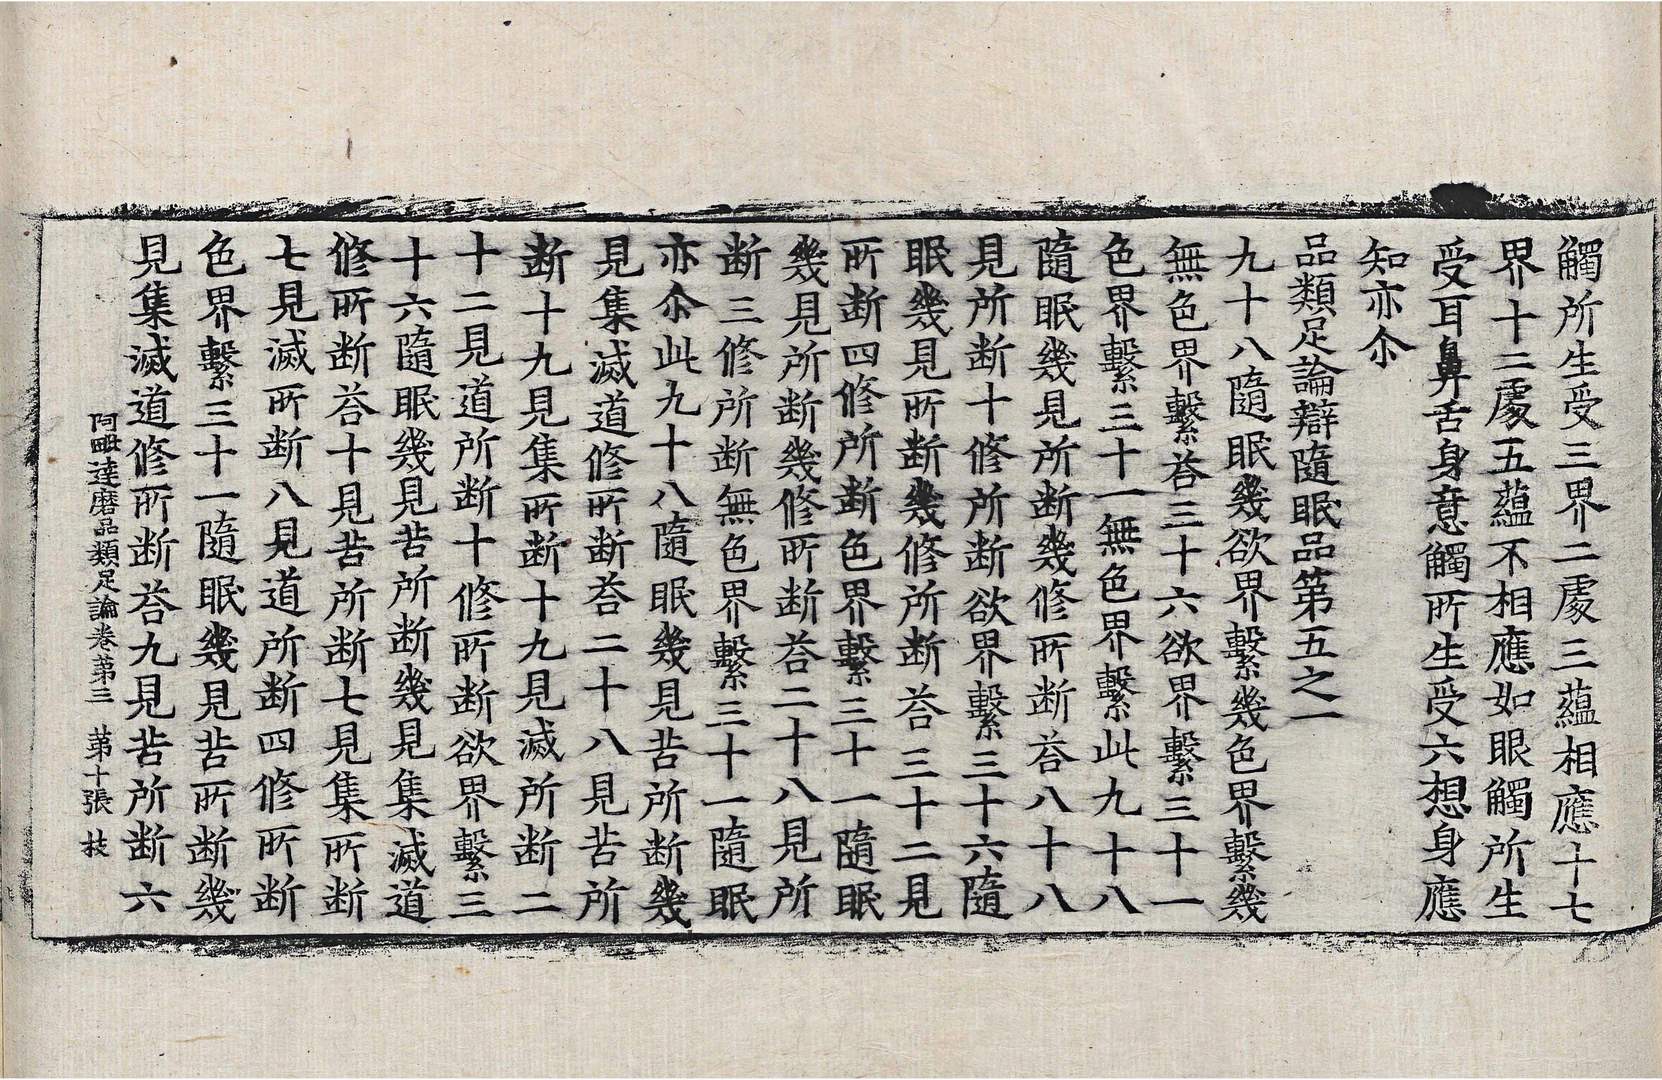 觸所生受三界二處三蘊相應十七
界十二處五蘊不相應如眼觸所生
受耳鼻舌身意觸所生受六想身應
知亦尒
品類足論辯隨眠品第五之一
九十八隨眠幾欲界繫幾色界繫幾
無色界繫荅三十六欲界繫三十一
色界繫三十一無色界繫此九十八
隨眠幾見所斷幾修所斷荅八十八
見所斷十修所斷欲界繫三十六隨
眠幾見所斷幾修所斷荅三十二見
所斷四修所斷色界繫三十一隨眠
幾見所斷幾修所斷荅二十八見所
斷三修所斷無色界繫三十一隨眠
亦尒此九十八隨眠幾見苦所斷幾
見集滅道修所斷荅二十八見苦所
斷十九見集所斷十九見滅所斷二
十二見道所斷十修所斷欲界繫三
十六隨眠幾見苦所斷幾見集滅道
修所斷荅十見苦所斷七見集所斷
七見滅所斷八見道所斷四修所斷
色界繫三十一隨眠幾見苦所斷幾
見集滅道修所斷荅九見苦所斷六
阿毗達磨品類足論卷第三 第十張 枝